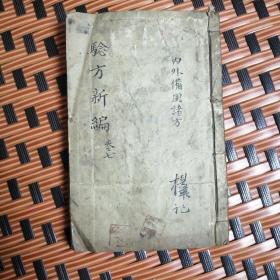 內外備用諸方
驗方新編 卷七
記